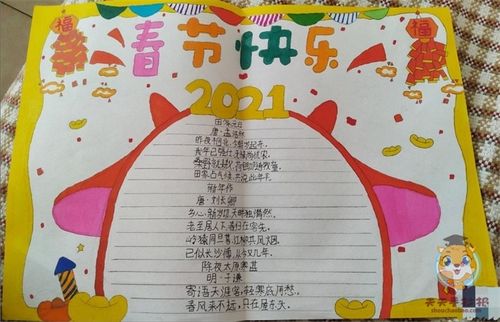 福
春节快乐
福
2021
田家元日
唐·孟浩然
昨夜斗回北，今朝岁起东。
我年已强仕，无禄尚忧农。
桑野就耕父，荷锄随牧童。
田家占气候，共说此年丰。
新年作
唐·刘长卿
乡心新岁切，天畔独潸然。
老至居人下，春归在客先。
岭猿同旦暮，江柳共风烟。
已似长沙傅，从今又几年。
除夜太原寒甚
明·于谦
寄语天涯客，轻寒底用愁。
春风来不远，只在屋东头。
天天手抄报
shouchaobao.com